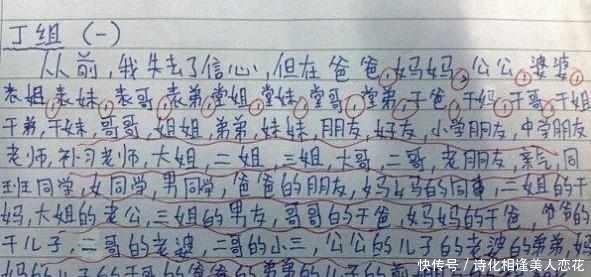 丁组 (一)
从前,我失去了信心,但在爸爸,妈妈,公公,婆婆,
表姐,表妹,表哥,表弟,堂姐,堂妹,堂哥,堂弟,干爸,干妈,干哥,干姐
干弟,干妹,哥哥,姐姐,弟弟,妹妹,朋友,好友,小学朋友,中学朋友
老师,补习老师,大姐,二姐,三姐,大哥,二哥,老朋友,亲气,同
班同学,女同学,男同学,爸爸的朋友,妈妈的同事,二姐的干
妈,大姐的老公,三姐的男友,哥哥的干爸,妈妈的干爸,爷爷的
干儿子,二哥的老婆,二哥的小三,公公的儿子的老婆的弟弟,妈
快传号/诗化相逢美人恋花